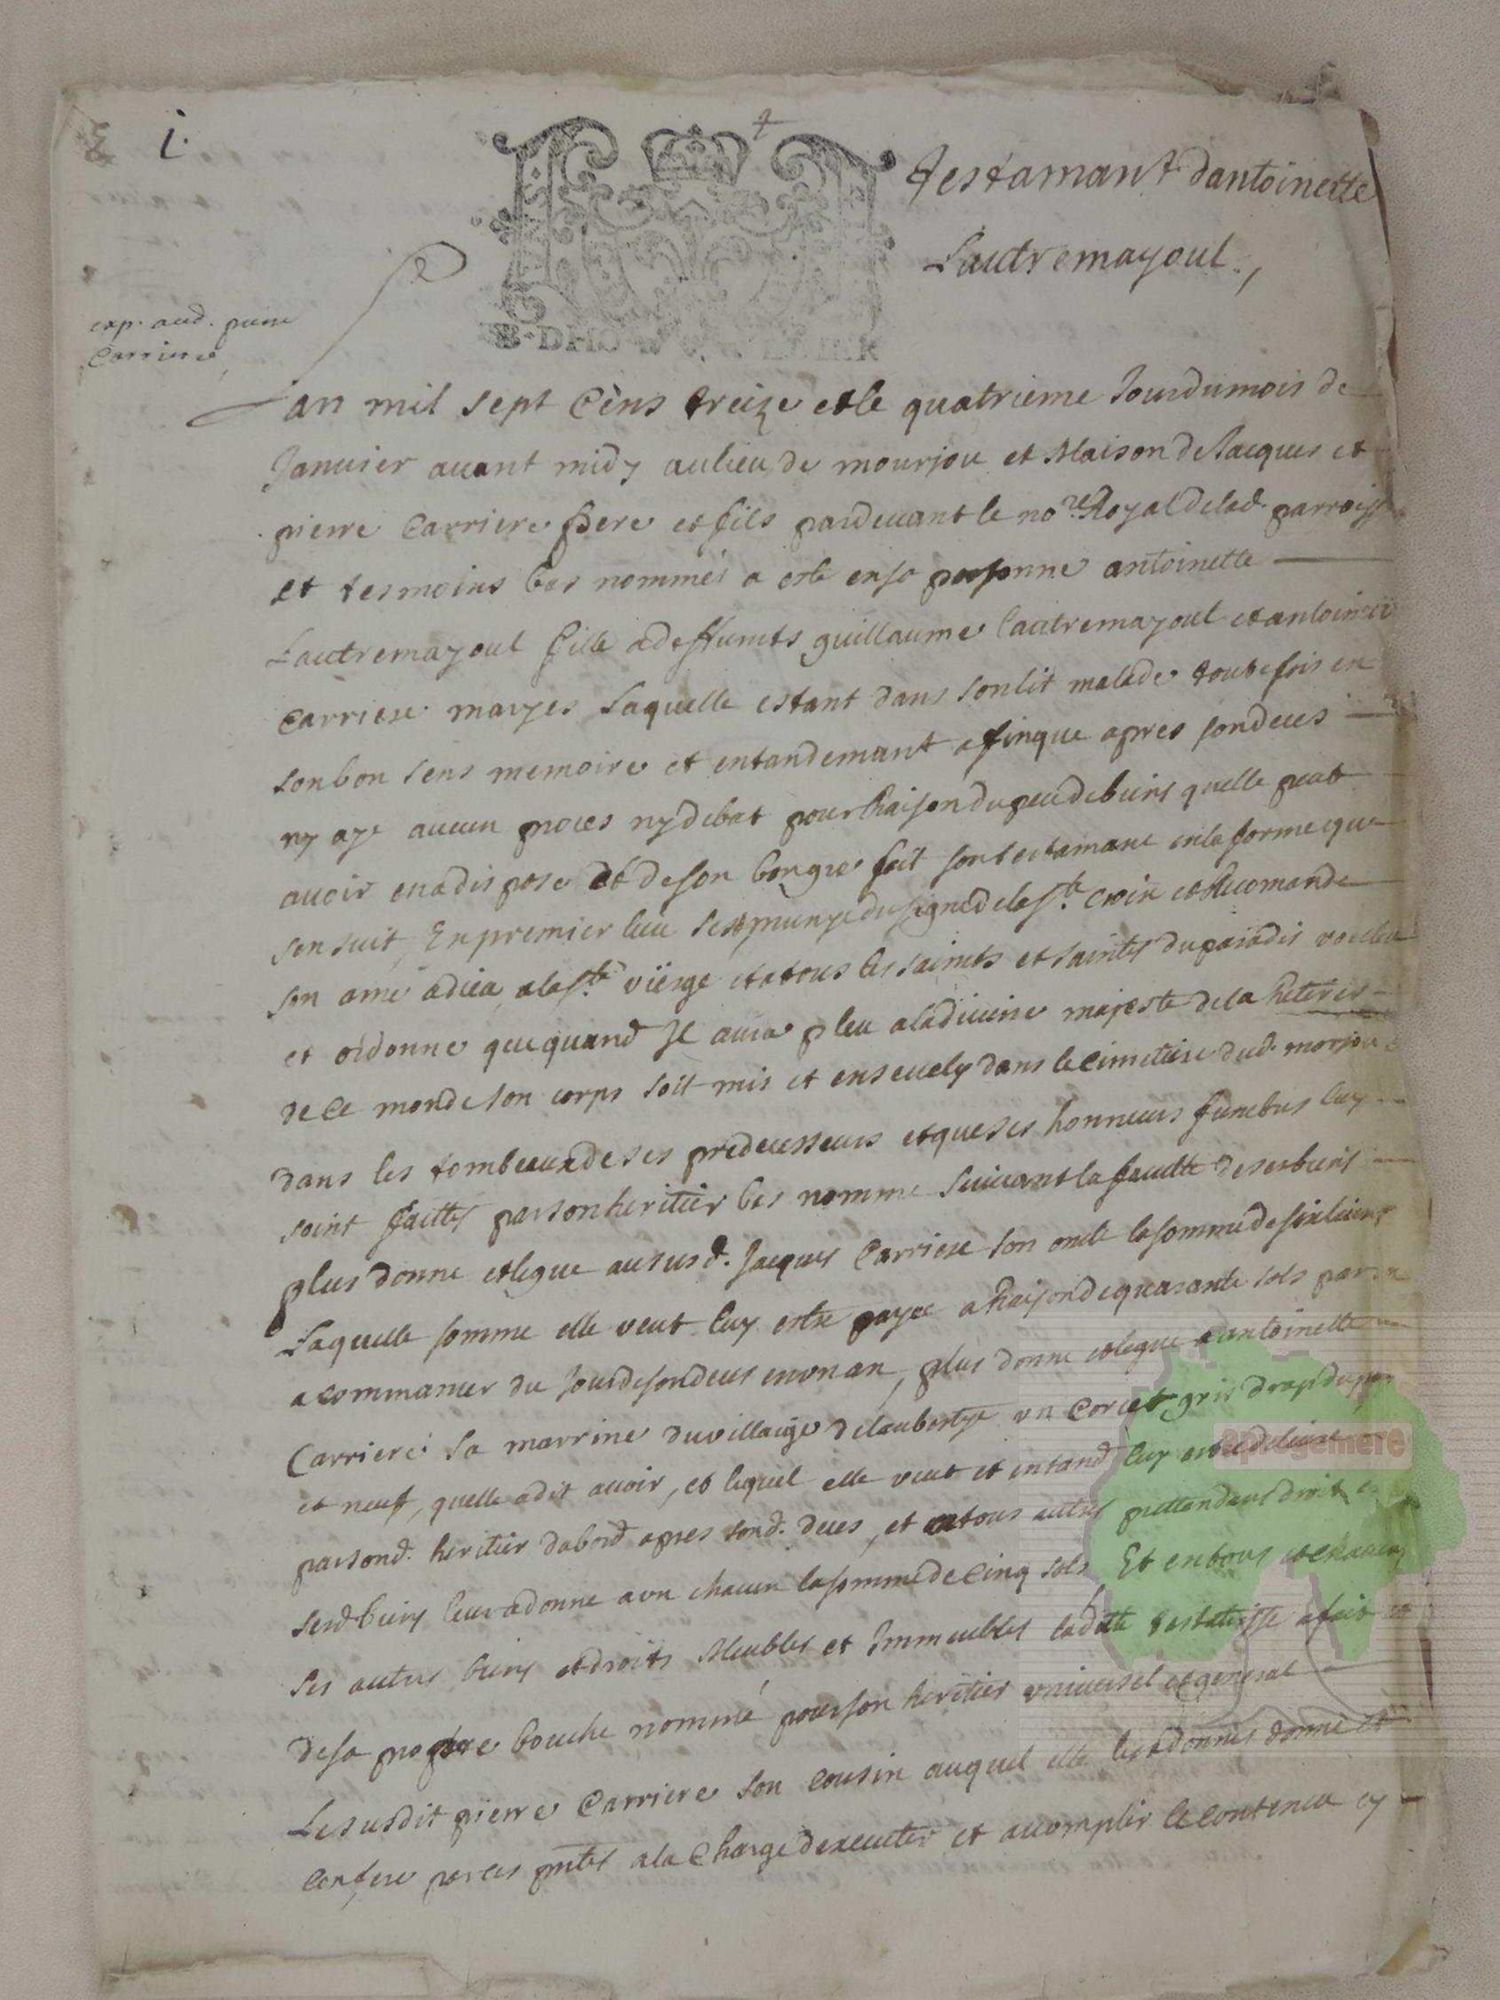 1.
Testamant dantoinette
Lautremayoul
exp. aud. pierre
Carriere
Lan mil sept cens treize et le quatrieme Jour du mois de
Janvier avant midy au lieu de mourjou et Maison de Jacques et
pierre Carriere pere et fils pardevant le nore. Royal de lad. parroisse
et tesmoins bas nommés a este en sa personne antoinette
Lautremayoul fille a deffunts guillaume lautremayoul et antoinette
Carriere maryes Laquelle estant dans son lit malade toutefois en
son bon sens memoire et entandemant afin que apres son deces
ny aye aucun proces ny debat pour Raison du peu de biens quelle peut
avoir en a dispose et de son bon gre fait son testamant en la forme que
sensuit, En premier lieu sest munye du signe de la ste. croix et Recomande
son ame a dieu a la ste. vierge et a tous les saints et saintes du paradis voulu
et ordonne que quand Il aura pleu a la divine majeste de la Retirer
de Ce monde son corps soit mis et ensevely dans le cimetiere dud. morjou
dans les tombeaux de ses predecesseurs et que ses honneurs funebres luy
soint faittes par son heritier bas nomme suivant la faculte de ses biens
plus donne et legue au susd. Jacques Carriere son oncle la somme de six livres
Laquelle somme elle veut luy estre payee a Raison de quarante sols par an
a commancer du Jour de son deces en un an, plus donne et legue a antoinette
Carriere sa marrine du village de laubertye un corcet gris drap du pais
et neuf, quelle a dit avoir, et lequel elle veut et entand luy estre delivre
par sond. heritier dabord apres sond. deces, et a tous autres prettendans droit
sesd. biens leur a donne a un chacun la somme de Cinq sols Et en tous et chacuns
ses autres biens et droits Meubles et Immeubles laditte testatrisse a fait et
de sa propre bouche nommé pour son heritier universel et general
Le susdit pierre Carriere son cousin auquel elle les a donnes donne et
confere par ces pntes a la Charge dexecuter et accomplir le contenu cy
apogemere